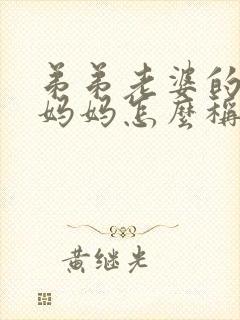 弟弟老婆的
妈妈怎麼稱
黄继光